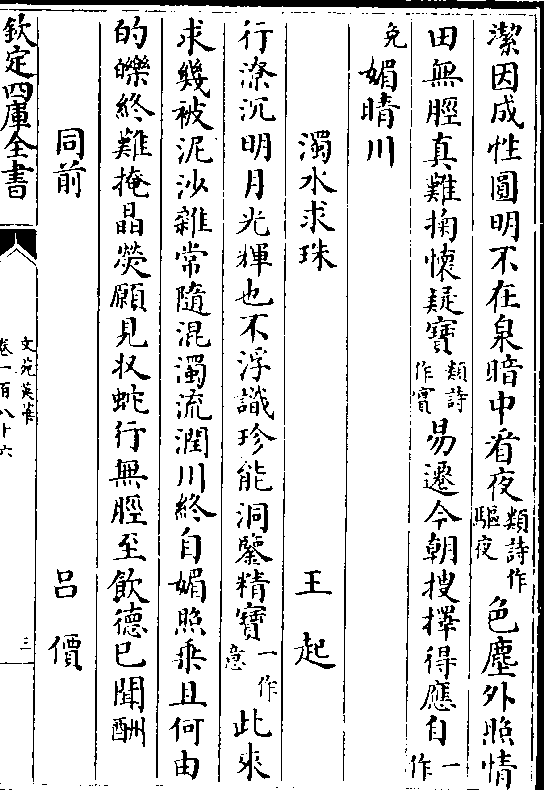 潔因成性圓明不在泉暗中看夜類詩作驅夜色塵外照情
田無脛真難掬懷疑寶類詩作實易遷今朝搜擇得應自一作
免媚晴川
濁水求珠 王起
行潦沉明月光輝也不浮識珍能洞鑒精寶一作意此來
求幾被泥沙雜常隨混濁流潤川終自媚照乗且何由
的皪終難掩晶熒願見収蛇行無脛至飲德已聞酬
同前 呂價
欽定四庫全書
文苑英華
卷一百八十六
三